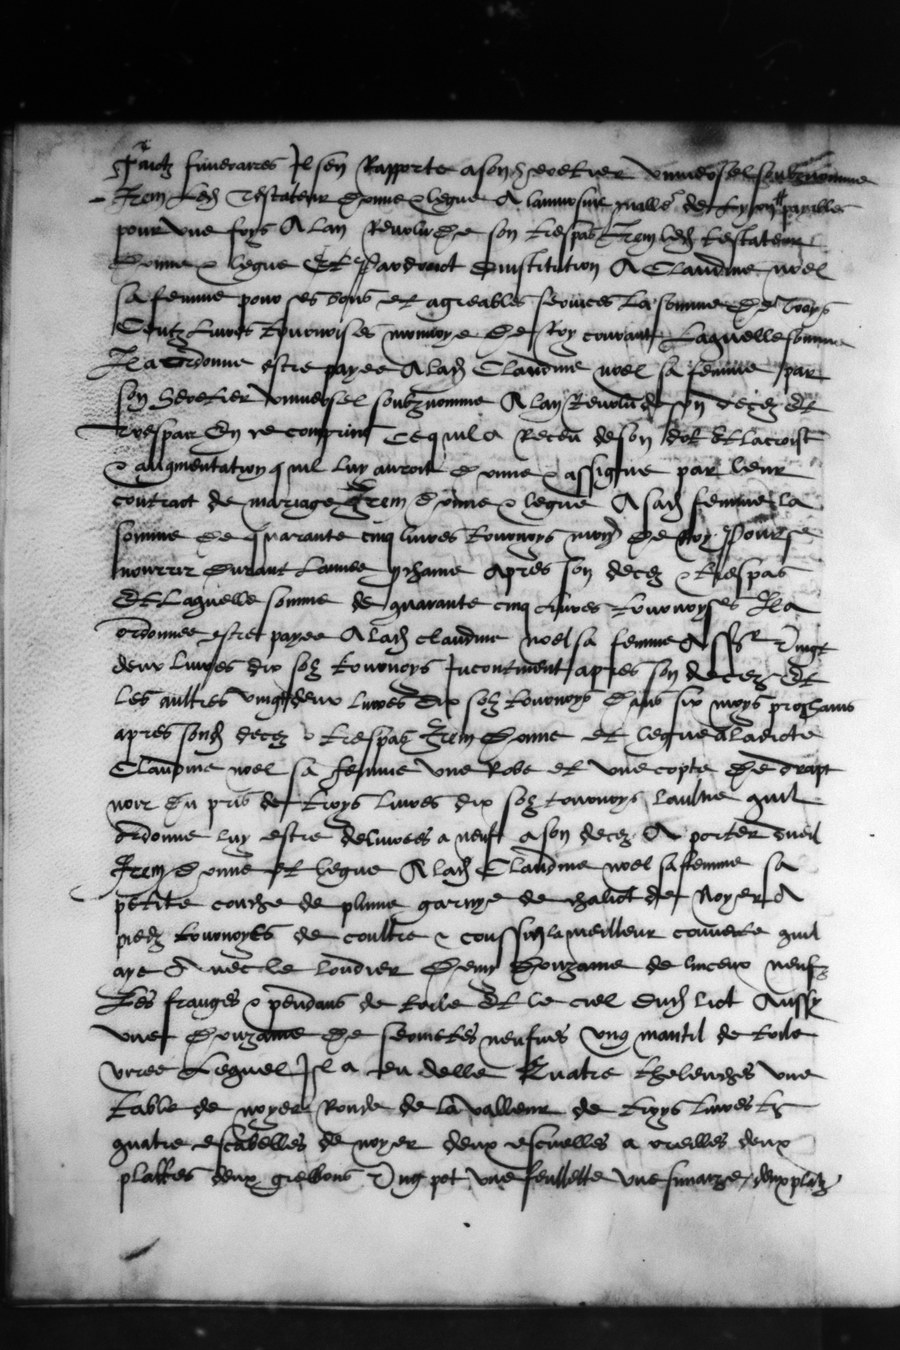 Fraictz funeraires Il s'en Rapporte a sond heretier universel soubznomme
Item led Testateur donne & legue A laumosne de Lyon
pour une foys A lan Revolu de son trespas Item led testateur
donne & legue Et Par droict dinstitution A Claudine noel
sa femme pour ses bons et agreables services La somme de troys
Centz Livres tournoises monnoye de Roy courant Laquelle somme
Il a ordonne estre payee A lad Claudine noel sa femme par
son heretier universel soubznomme A lan Revolu de son decez et
Trespas En ce comprins ce quil a Receu de son dot et lacroist
& augmentation quil luy auroit donne & assigne par leur
contract de mariage Item donne & legue A sad femme la
somme de quarante cinq livres tournoys monn de Roy Pour se
nourrir durant Lannee prochaine Apres son decez & trespas
Et Laquelle somme de quarante cinq livres tournoyses Il a
ordonnee estre payee A lad claudine noel sa femme Vingt
deux livres dix solz tournoys Incontinent apres son decez et
Les aultres vingt deux livres dix solz tournoys dans six moys prochains
apres sond decez & trespas Item donne et legue a ladicte
Claudine noel sa femme une Robe et une cotte de drapt
noir du pris de troys livres dix solz tournoys laulne quil
ordonne luy estre delivrees a neuf a son decez A porter dueil
Item donne et legue A lad Claudine noel sa femme sa
petite couche de plume garnye de chalict de Noyer A
piedz tournoyes de coultre & coussin la meilleur couverte quil
aye Avec le loudier demy douzaine de linceux neufz
Les franges & pendans de toile et le ciel dud lict Aussy
une douzaine de serviettes neufves Ung mantil de toile
Lequel Il a eu delle Quatre une
table de noyer Ronde de la valleur de troys livres
quatre escabelles de noyer deux escuelles a oreilles deux
plattes deux grellons Ung pot une feullette une deux platz